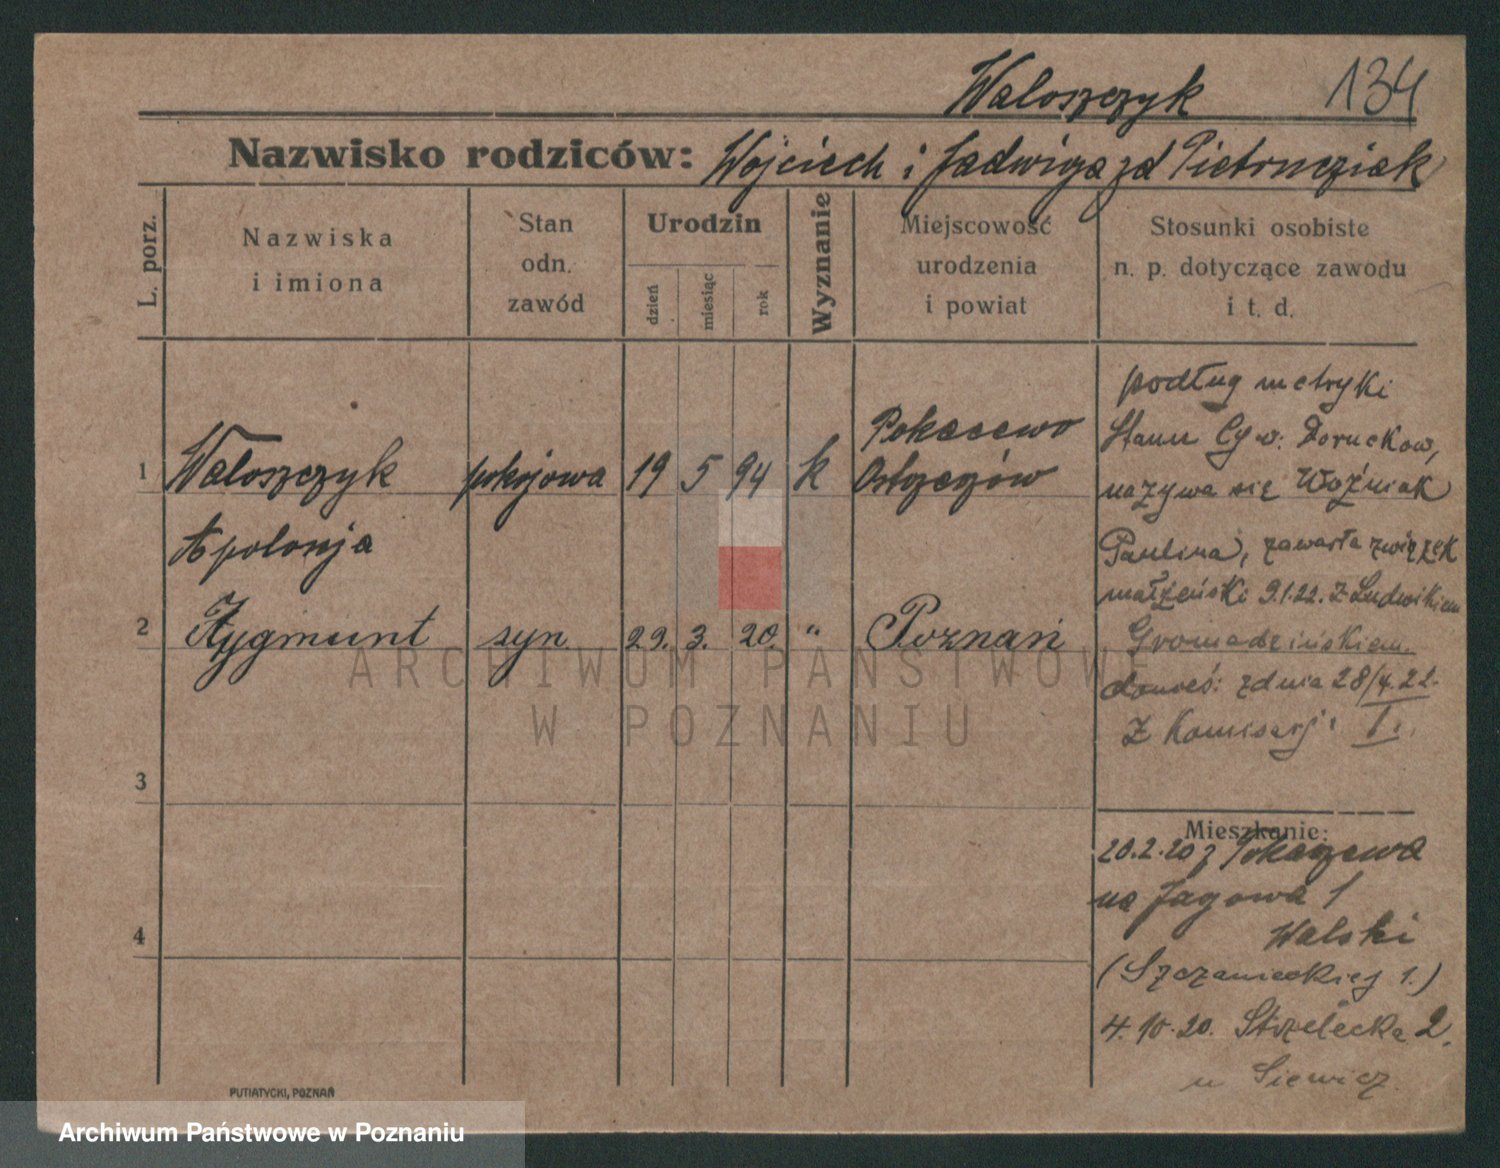 Waloszczyk 134
Nazwisko rodziców: Wojciech i Jadwiga zd Pietrucziak
L. porz.
Nazwiska
i imiona
Stan
odn.
zawód
Urodzin
dzień
miesiąc
rok
Wyznanie
Miejscowość
urodzenia
i powiat
Stosunki osobiste
n. p. dotyczące zawodu
i t. d.
1 Waloszczyk pokojowa 19 5 94 k
Apolonja
Ostrzeszów
2 Zygmunt syn 29. 3. 20. " Poznań
3
4
podług metryki
Stanu Cyw: Doruchow,
nazywa się Woźniak
Paulina, zawarła związek
małżeński 9.1.22. z Ludwikiem
Gromadzińskiem.
zdnia 28/4.22.
Z Komisarj: I.
Mieszkanie:
20.2.20 z
na Jagowa 1
Walski
(Szczanieckiej 1.)
4.10.20. Strzelecka 2.
u Siewicz.
PUTIATYCKI, POZNAŃ
ARCHIWUM PAŃSTWOWE
W POZNANIU
Archiwum Państwowe w Poznaniu